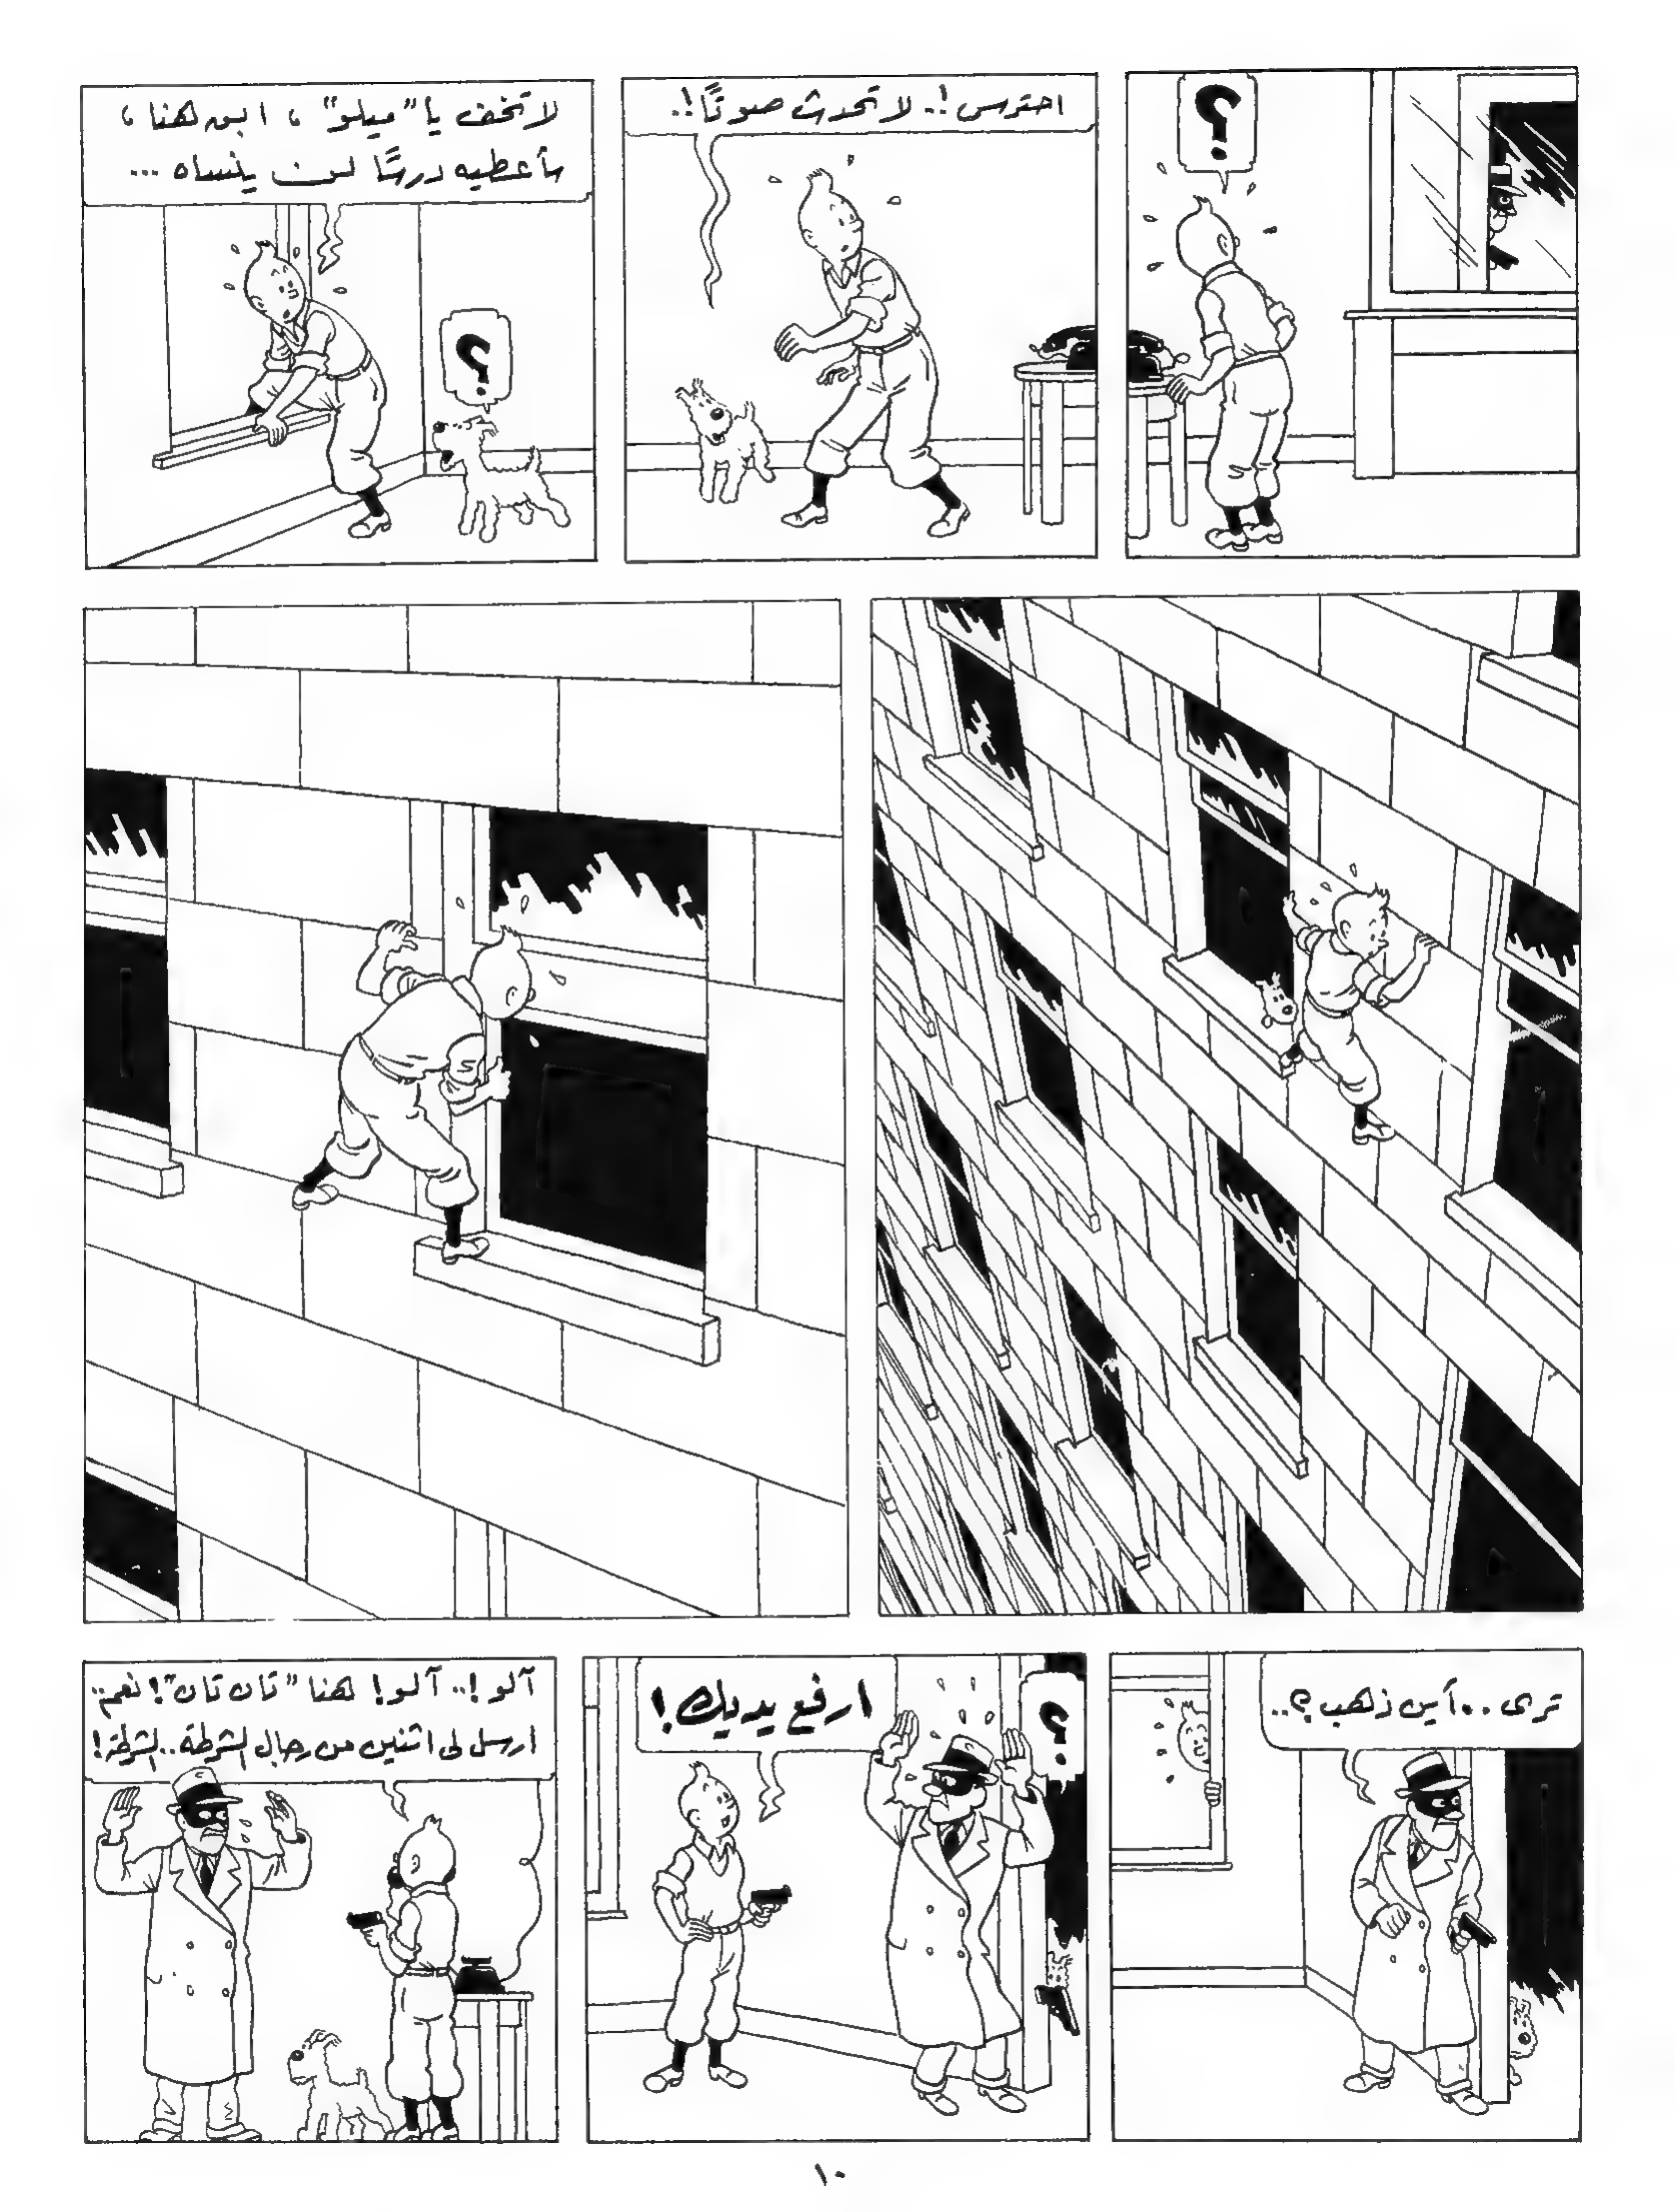 ؟
احترس !.. لا تحدث صوتًا !..
لا تخف يا "ميلو" ، ابق هنا ،
سأعطيه درسًا لن ينساه ...
؟
ترى .. أين ذهب ؟..
ارفع يديك !
؟
آلو !.. آلو ! هنا "تان تان" ! نعم..
ارسل لى اثنين من رجال الشرطة .. الشرطة !
١٠